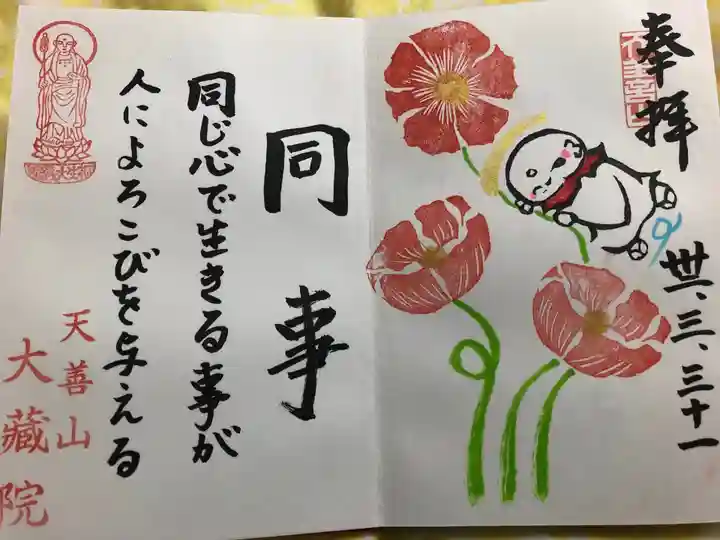 奉拝
卅一、三、三十一
同事
同じ心で生きる事が
人によろこびを与える
天善山
大藏院